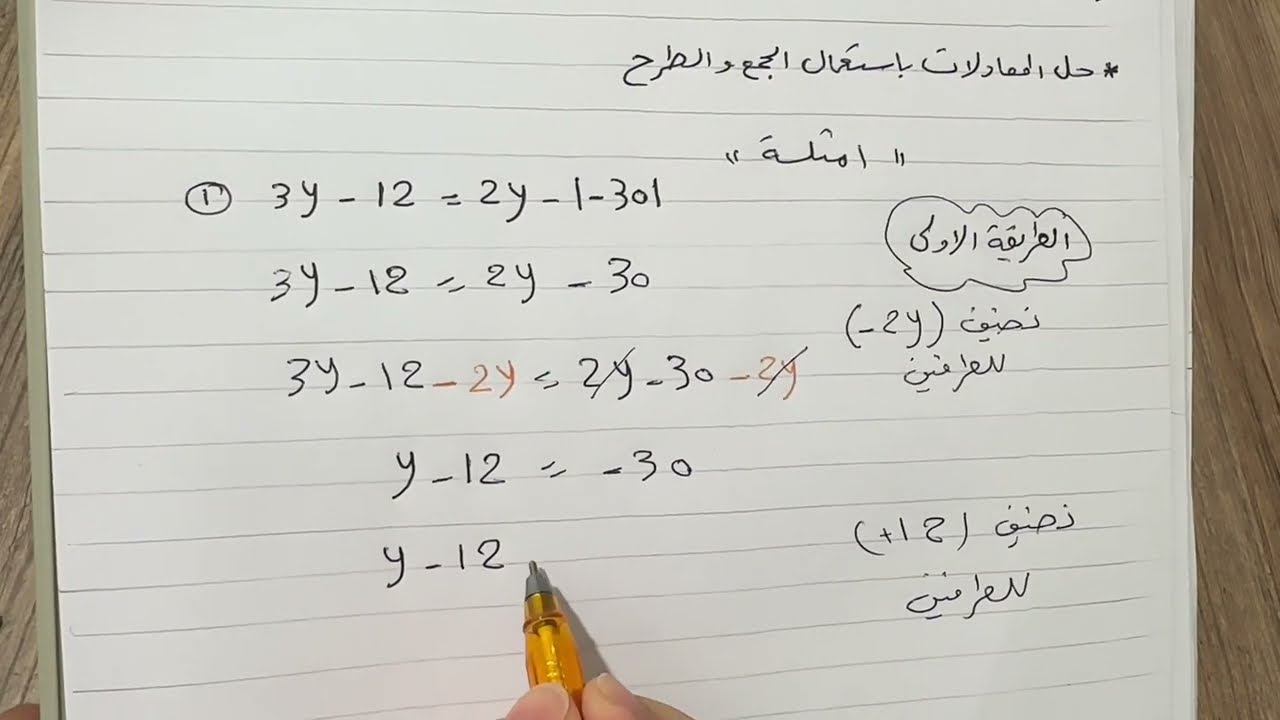 * حل المعادلات باستعمال الجمع والطرح
" امثلة "
① 3y - 12 = 2y - |-30|
الطريقة الاولى
3y - 12 = 2y - 30
نضيف (-2y)
للطرفين
3y - 12 - 2y = 2y - 30 - 2y
y - 12 = -30
نضيف (+12)
للطرفين
y - 12